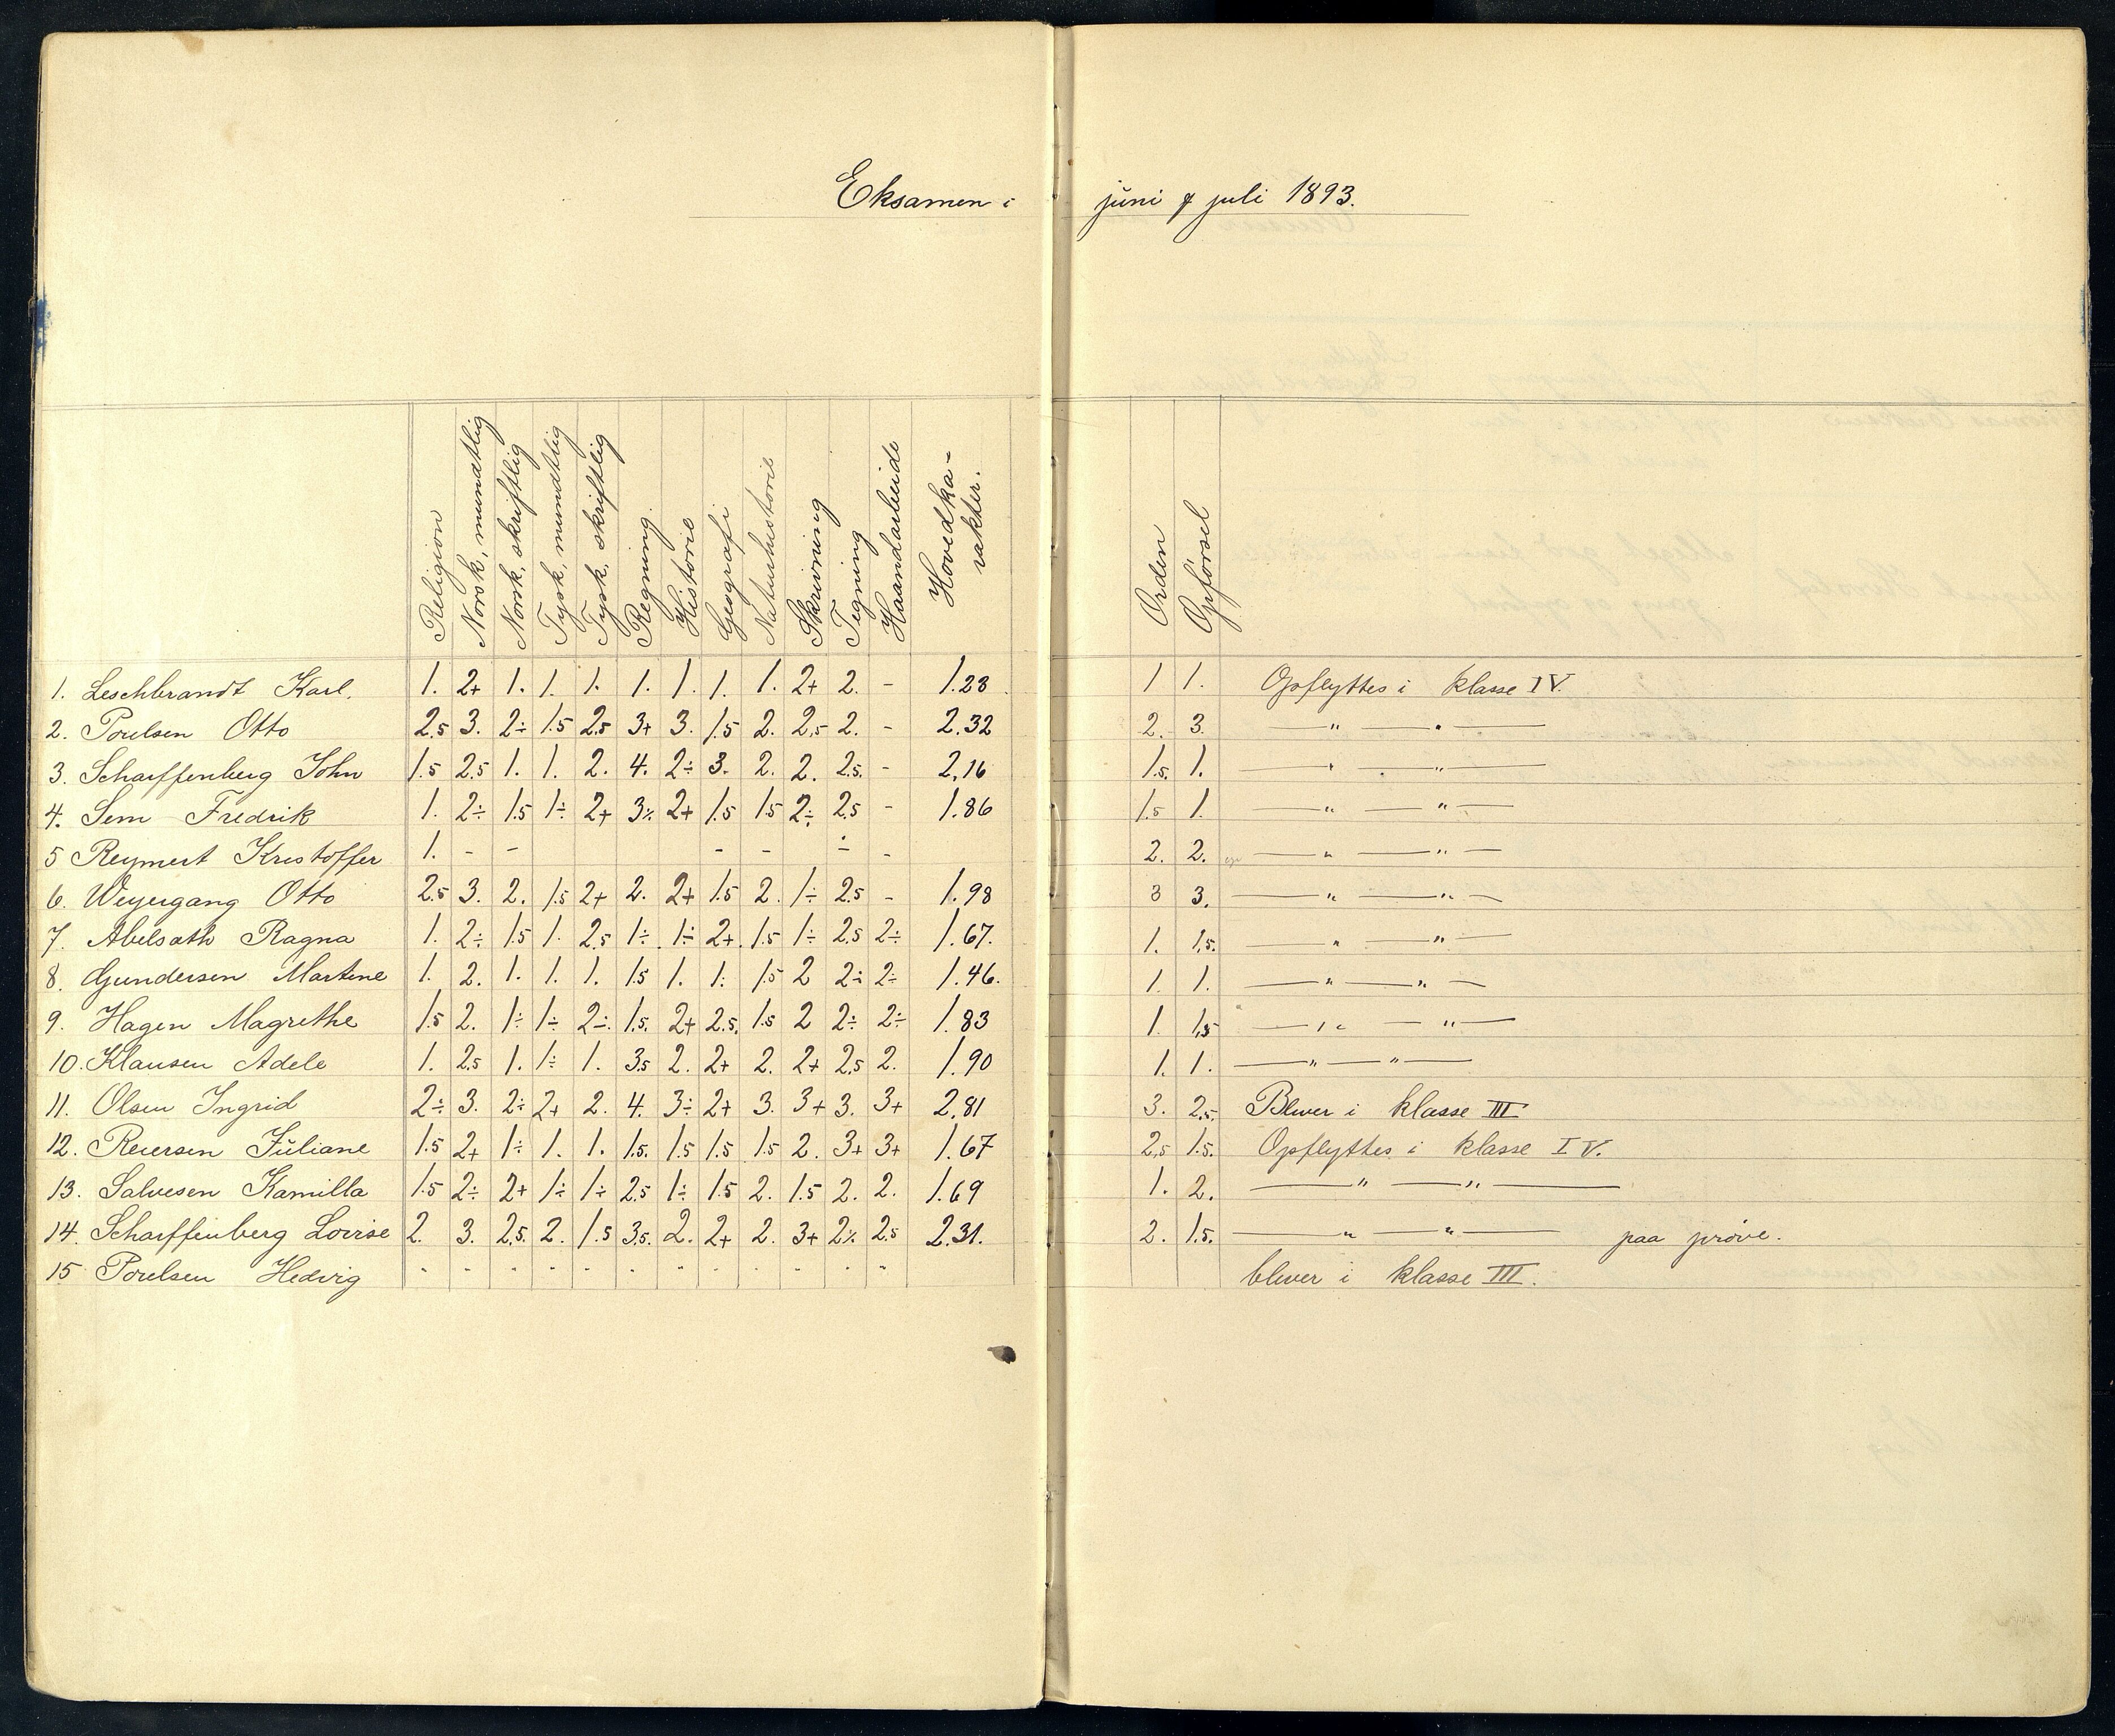 Eksamen i juni & juli 1893.
Religion | Norsk, mundtlig | Norsk, skriftlig | Tysk, mundtlig | Tysk, skriftlig | Regning. | Historie | Geografi | Naturhistorie | Skrivning | Tegning | Haandarbeide | Hovedka-rakter. | Orden | Opførsel
1. Leschbrandt Karl. 1. 2+ 1. 1. 1. 1. 1. 1. 1. 2+ 2. - 1.23 1 1. Opflyttes i klasse IV.
2. Poulsen Otto 2.5 3. 2÷ 1.5 2.5 3+ 3. 1.5 2. 2.5 2. - 2.32 2. 3. — " — " —
3. Scharffenberg John 1.5 2.5 1. 1. 2. 4. 2÷ 3. 2. 2. 2.5. - 2,16 1.5. 1. — " — " —
4. Sem Fredrik 1. 2÷ 1.5 1÷ 2+ 3÷ 2+ 1.5 1.5 2÷ 2.5 - 1.86 1.5 1. — " — " —
5 Reymert Kristoffer 1. - - - - - - 2. 2. — " — " —
6. Weyergang Otto 2.5 3. 2. 1.5 2+ 2. 2+ 1.5 2. 1÷ 2.5 - 1.98 3 3. — " — " —
7. Abelsøth Ragna 1. 2÷ 1.5 1. 2.5 1÷ 1÷ 2+ 1.5 1÷ 2.5 2÷ 1.67. 1. 1,5. — " — " —
8. Gundersen Martine 1. 2. 1. 1. 1. 1.5 1. 1. 1.5 2 2÷ 2÷ 1.46. 1. 1. — " — " —
9. Hagen Magrethe 1.5 2. 1÷ 1÷ 2÷ 1.5. 2+ 2.5. 1.5 2 2÷ 2÷ 1.83 1. 1,5 — " — " —
10. Klausen Adele 1. 2.5 1. 1÷ 1. 3.5 2. 2+ 2. 2+ 2.5 2. 1.90 1. 1. — " — " —
11. Olsen Ingrid 2÷ 3. 2÷ 2+ 2. 4. 3÷ 2+ 3. 3+ 3. 3+ 2,81 3. 2.5. Bliver i klasse III
12. Reiersen Juliane 1.5 2+ 1÷ 1. 1. 1.5. 1.5 1.5 1.5 2. 3+ 3+ 1.67 2.5 1.5. Opflyttes i klasse IV.
13. Salvesen Kamilla 1.5 2÷ 2+ 1÷ 1÷ 2.5 1÷ 1.5 2. 1.5 2. 2. 1.69 1. 2. — " — " —
14. Scharffenberg Lovise 2. 3. 2.5. 2. 1.5 3.5. 2. 2+ 2. 3+ 2÷ 2.5 2.31. 2. 1.5. — " — " — paa prøve.
15 Poulsen Hedvig - - - - - - - - - - - - bliver i klasse III.